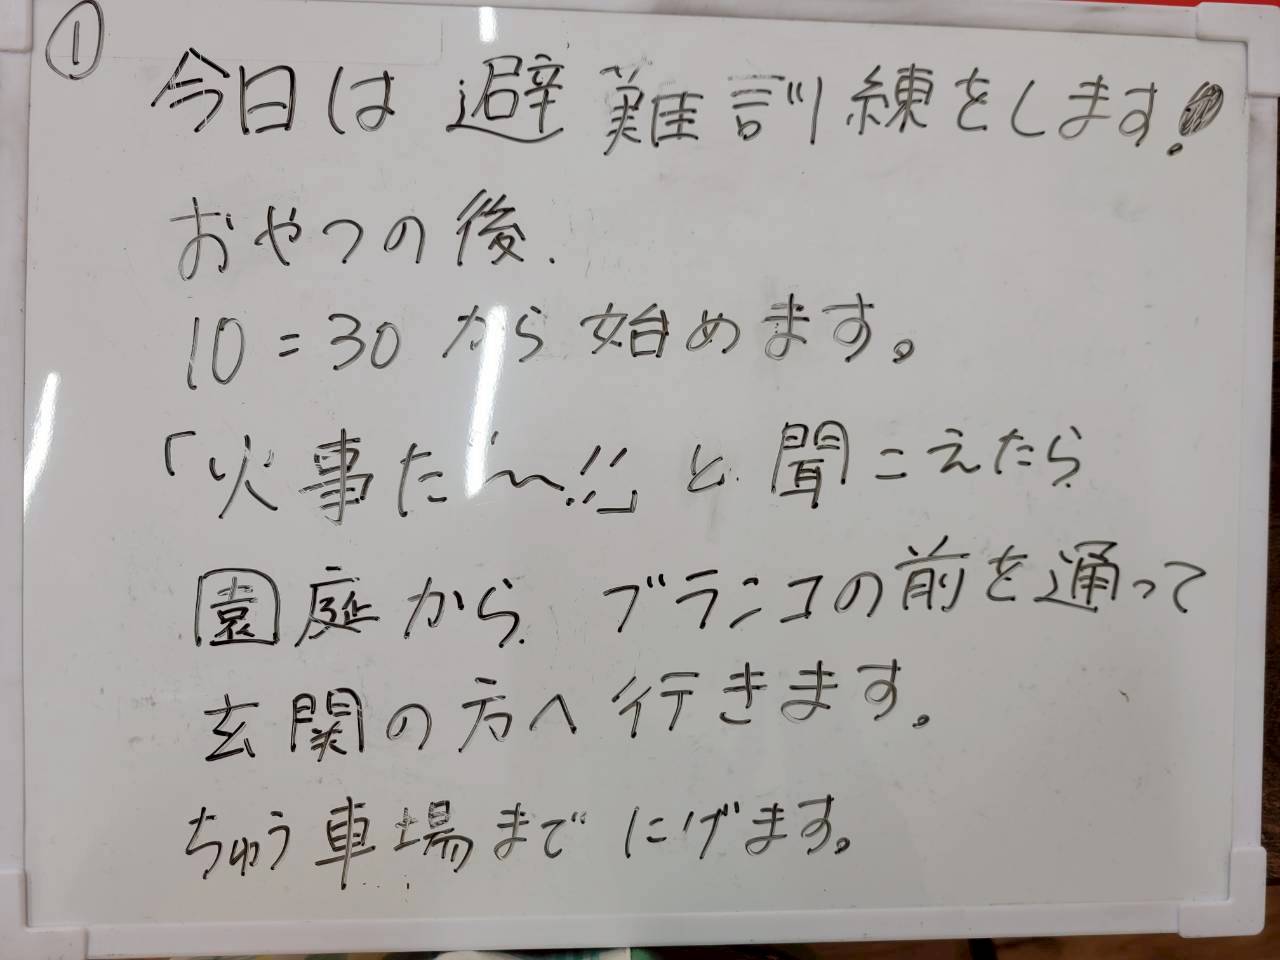 ①
今日は避難訓練をします!
おやつの後、
10:30から始めます。
「火事だ〜!!」と聞こえたら
園庭から、ブランコの前を通って
玄関の方へ行きます。
ちゅう車場までにげます。